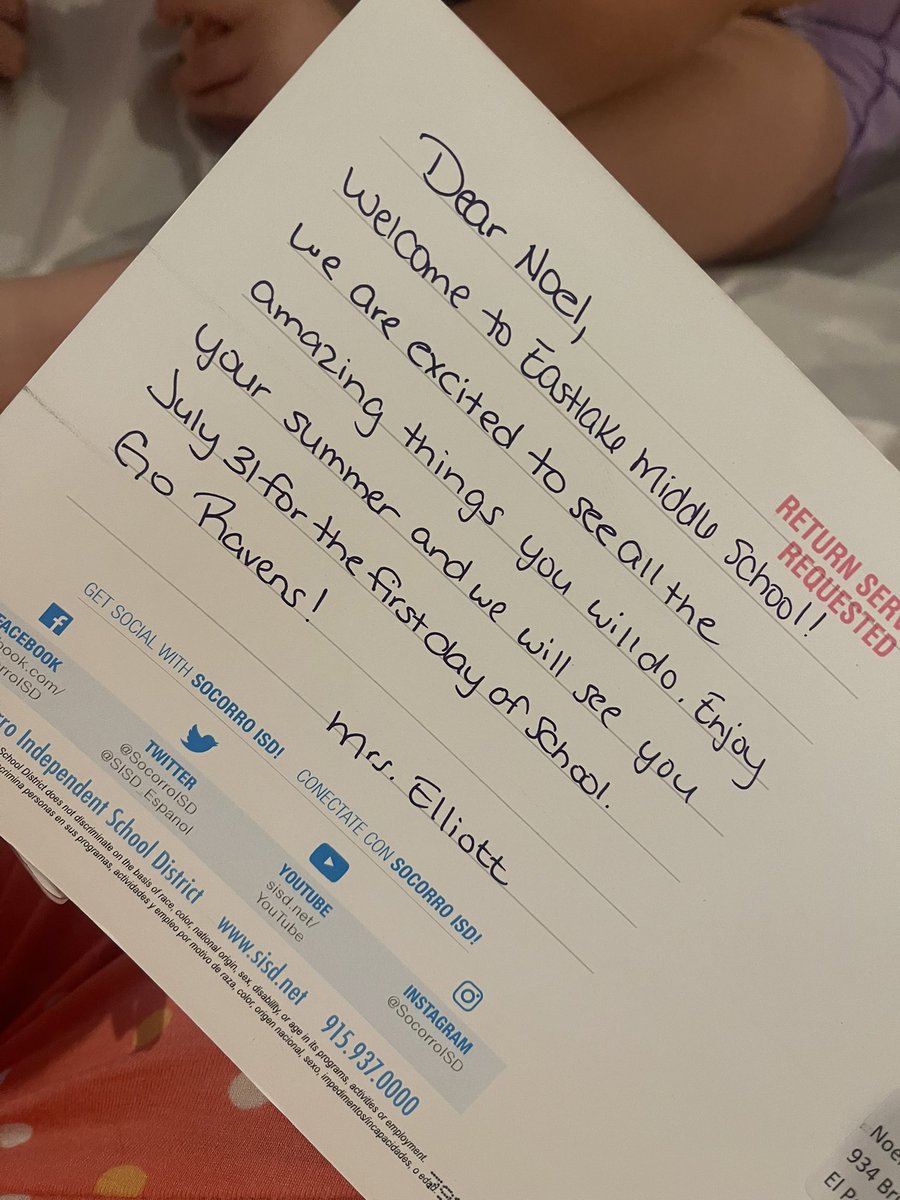 Dear Noel,
Welcome to Eastlake Middle School!
We are excited to see all the
amazing things you will do. Enjoy
your summer and we will see you
July 31 for the first day of school.
Go Ravens!
Mrs. Elliott
RETURN SERV
REQUESTED
GET SOCIAL WITH SOCORRO ISD! CONECTATE CON SOCORRO ISD!
FACEBOOK
book.com/
orroISD
TWITTER
@SocorroISD
@SISD_Espanol
YOUTUBE
sisd.net/
YouTube
INSTAGRAM
@SocorroISD
rro Independent School District www.sisd.net 915.937.0000
School District does not discriminate on the basis of race, color, national origin, sex, disability, or age in its programs, activities or employment.
crimina personas en sus programas, actividades y empleo por motivo de raza, color, origen nacional, sexo, impedimentos/incapacidades, o edad.
Noe
934 Br
El P